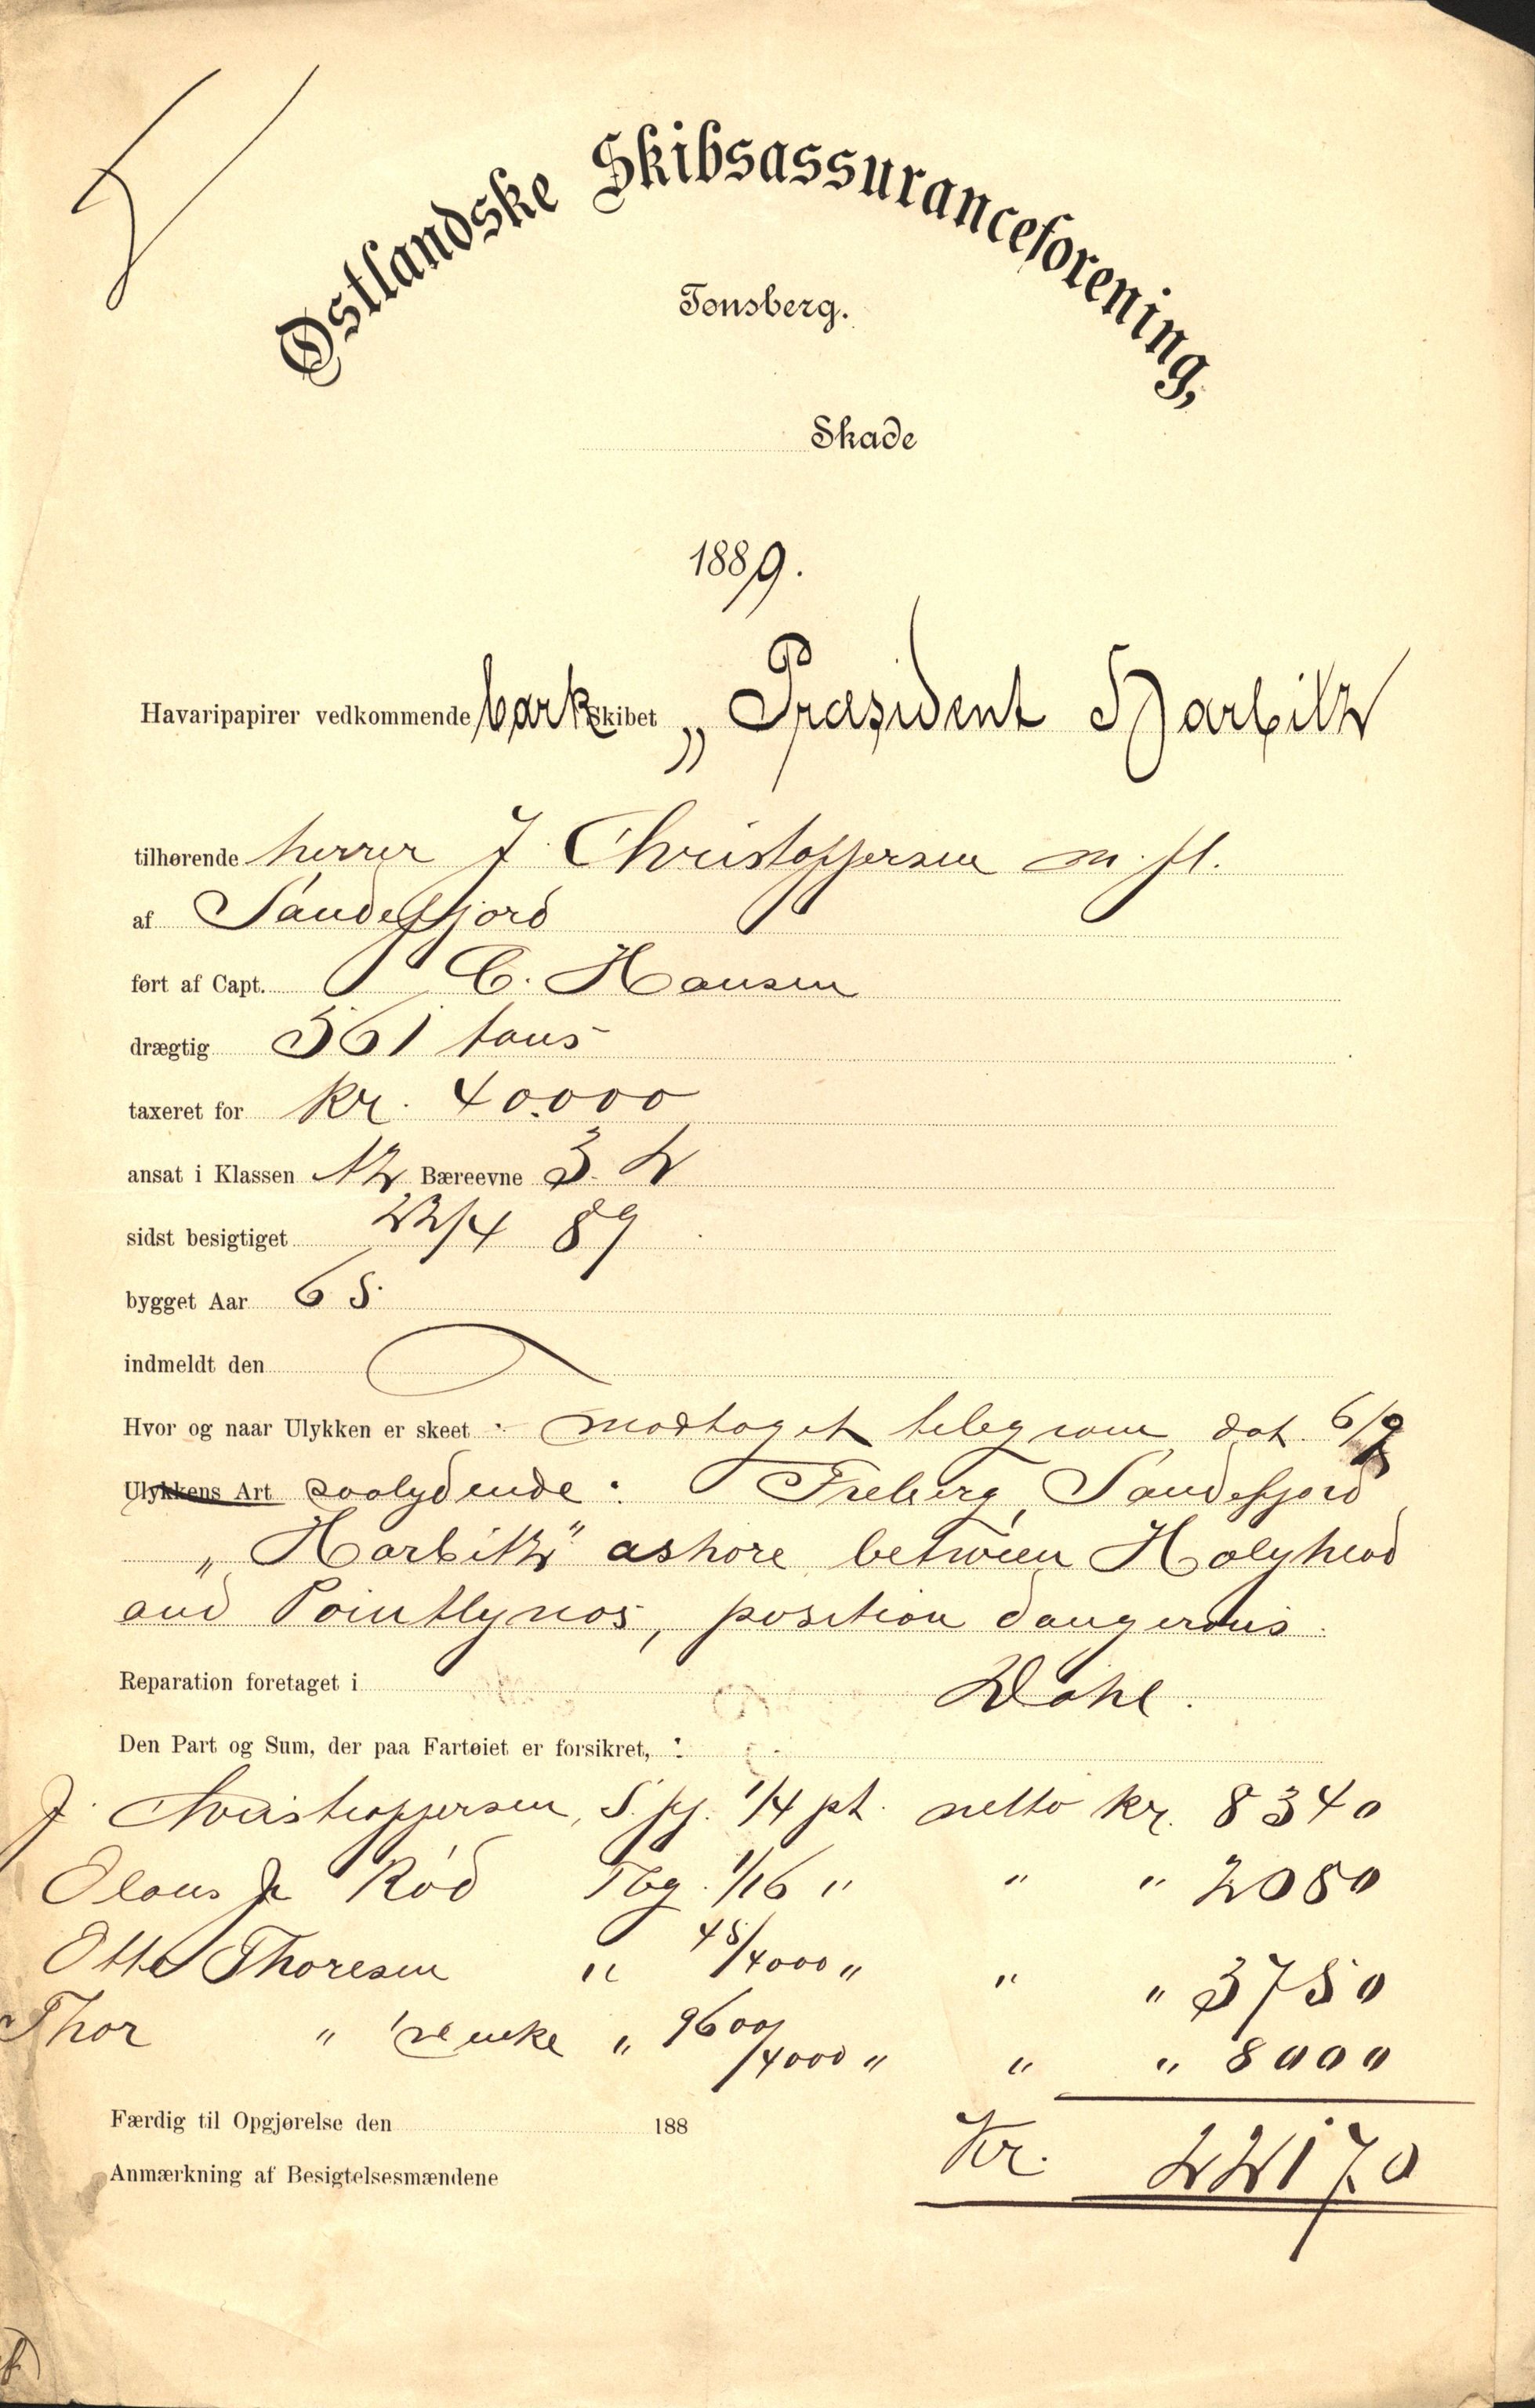 Østlandske Skibsassuranceforening,
Tønsberg.
Skade
1889.
Havaripapirer vedkommende bark Skibet „Præsident Harbitz
tilhørende herrer J. Christophersen m. fl.
af Sandefjord
ført af Capt. C. Hansen
drægtig 361 tons
taxeret for Kr. 40.000
ansat i Klassen A2 Bæreevne 3. 2
sidst besigtiget 22/4 89
bygget Aar 65.
indmeldt den
Hvor og naar Ulykken er skeet :- modtaget telegram dat. 6/9
Ulykkens Art saalydende : Freberg, Sandefjord
„Harbitz" ashore between Holyhead
and Pointlynos, position dangerous.
Reparation foretaget i Dahl.
Den Part og Sum, der paa Fartøiet er forsikret, :
J. Christophersen, S.fj. 1/4 pt. netto kr. 8340
Olaus Rød Tbg. 1/16 " " " 2080
Otto Thoresen " 45/4000 " " " 3750
Thor " enke " 9600/4000 " " " 8000
Færdig til Opgjørelse den 188
Kr. 22170
Anmærkning af Besigtelsesmændene